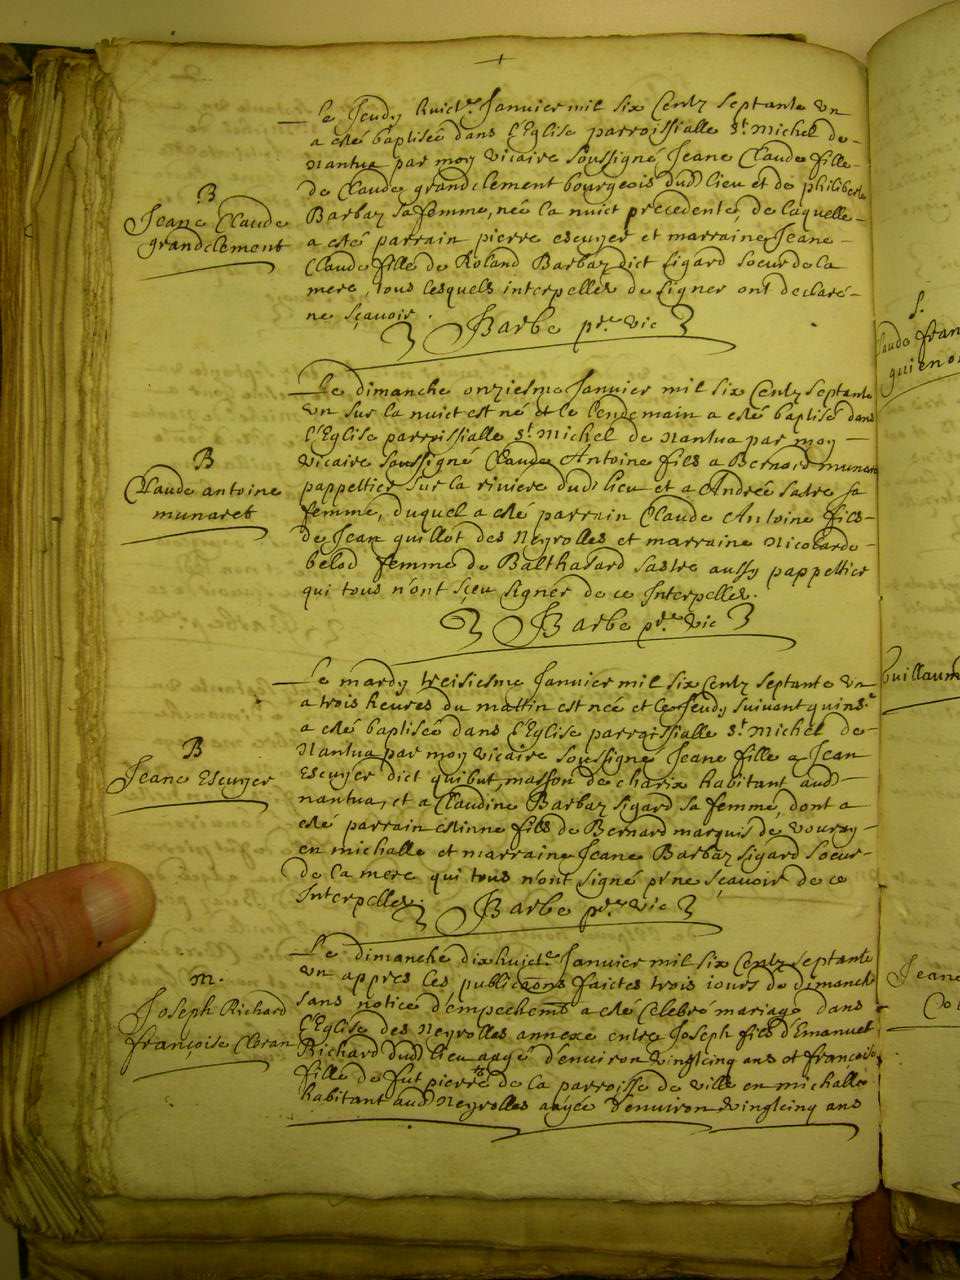 Le Jeudy huict.e Janvier mil six Centz septante un
a esté baptisée dans l'Eglise parroissialle S.t Michel de
Nantua par moy vicaire soussigné Jeane Claude fille
de Claude grandclement bourgeois dud lieu et de philiberte
B
Jeane Claude
grandclement
Barbaz sa femme, née la nuict precedente, de laquelle
a esté parrain pierre escuyer et marraine Jeane
Claude fille de Roland Barbaz dict sigard soeur de la
mere, tous lesquels interpelles de signer ont declaré
ne sçavoir.
Barbe p.re vic
Le dimanche onziesme Janvier mil six Centz septante
un sur la nuict est né et le lendemain a esté baptisé dans
l'Eglise parroissialle S.t Michel de Nantua par moy
vicaire soussigné Claude Antoine fils a Bernard munaret
B
Claude antoine
munaret
pappeltier sur la riviere dud lieu et a Andrée sastre sa
femme, duquel a esté parrain Claude Antoine fils
de Jean quillot des Neyrolles et marraine Nicolarde
belod femme de Balthasard sastre aussy pappeltier
qui tous n'ont sçeu signer de ce Interpelles.
Barbe p.re vic
Le mardy treisiesme Janvier mil six Centz septante un
a trois heures du mattin est née et le Jeudy suivant quins.e
a esté baptisée dans l'Eglise parroissialle S.t Michel de
Nantua par moy vicaire soussigné Jeane fille a Jean
B
Jeane Escuyer
Escuyer dict quibut, masson de charix habitant aud
nantua, et a Claudine Barbaz sigard sa femme, dont a
esté parrain estinne fils de Bernard marquis de vouray
en michalle et marraine Jeane Barbaz sigard soeur
de la mere qui tous n'ont signé p.r ne sçavoir de ce
Interpelles.
Barbe p.re vic
Le dimanche dix huict.e Janvier mil six Centz septante
un appres les publicaons faictes trois iours de dimanche
m.
Joseph Richard
françoise Cleran
sans notice d'empechem.t a esté Celebré mariage dans
l'Eglise des Neyrolles annexe entre Joseph fils d'Emanuel
Richard dud lieu aagé d'environ vingtcinq ans et françoise
fille de fut pierre de la parroisse de ville en michalle
habitant aud Neyrolles aagée d'environ vingtcinq ans
S.
Guillaum
Jeane